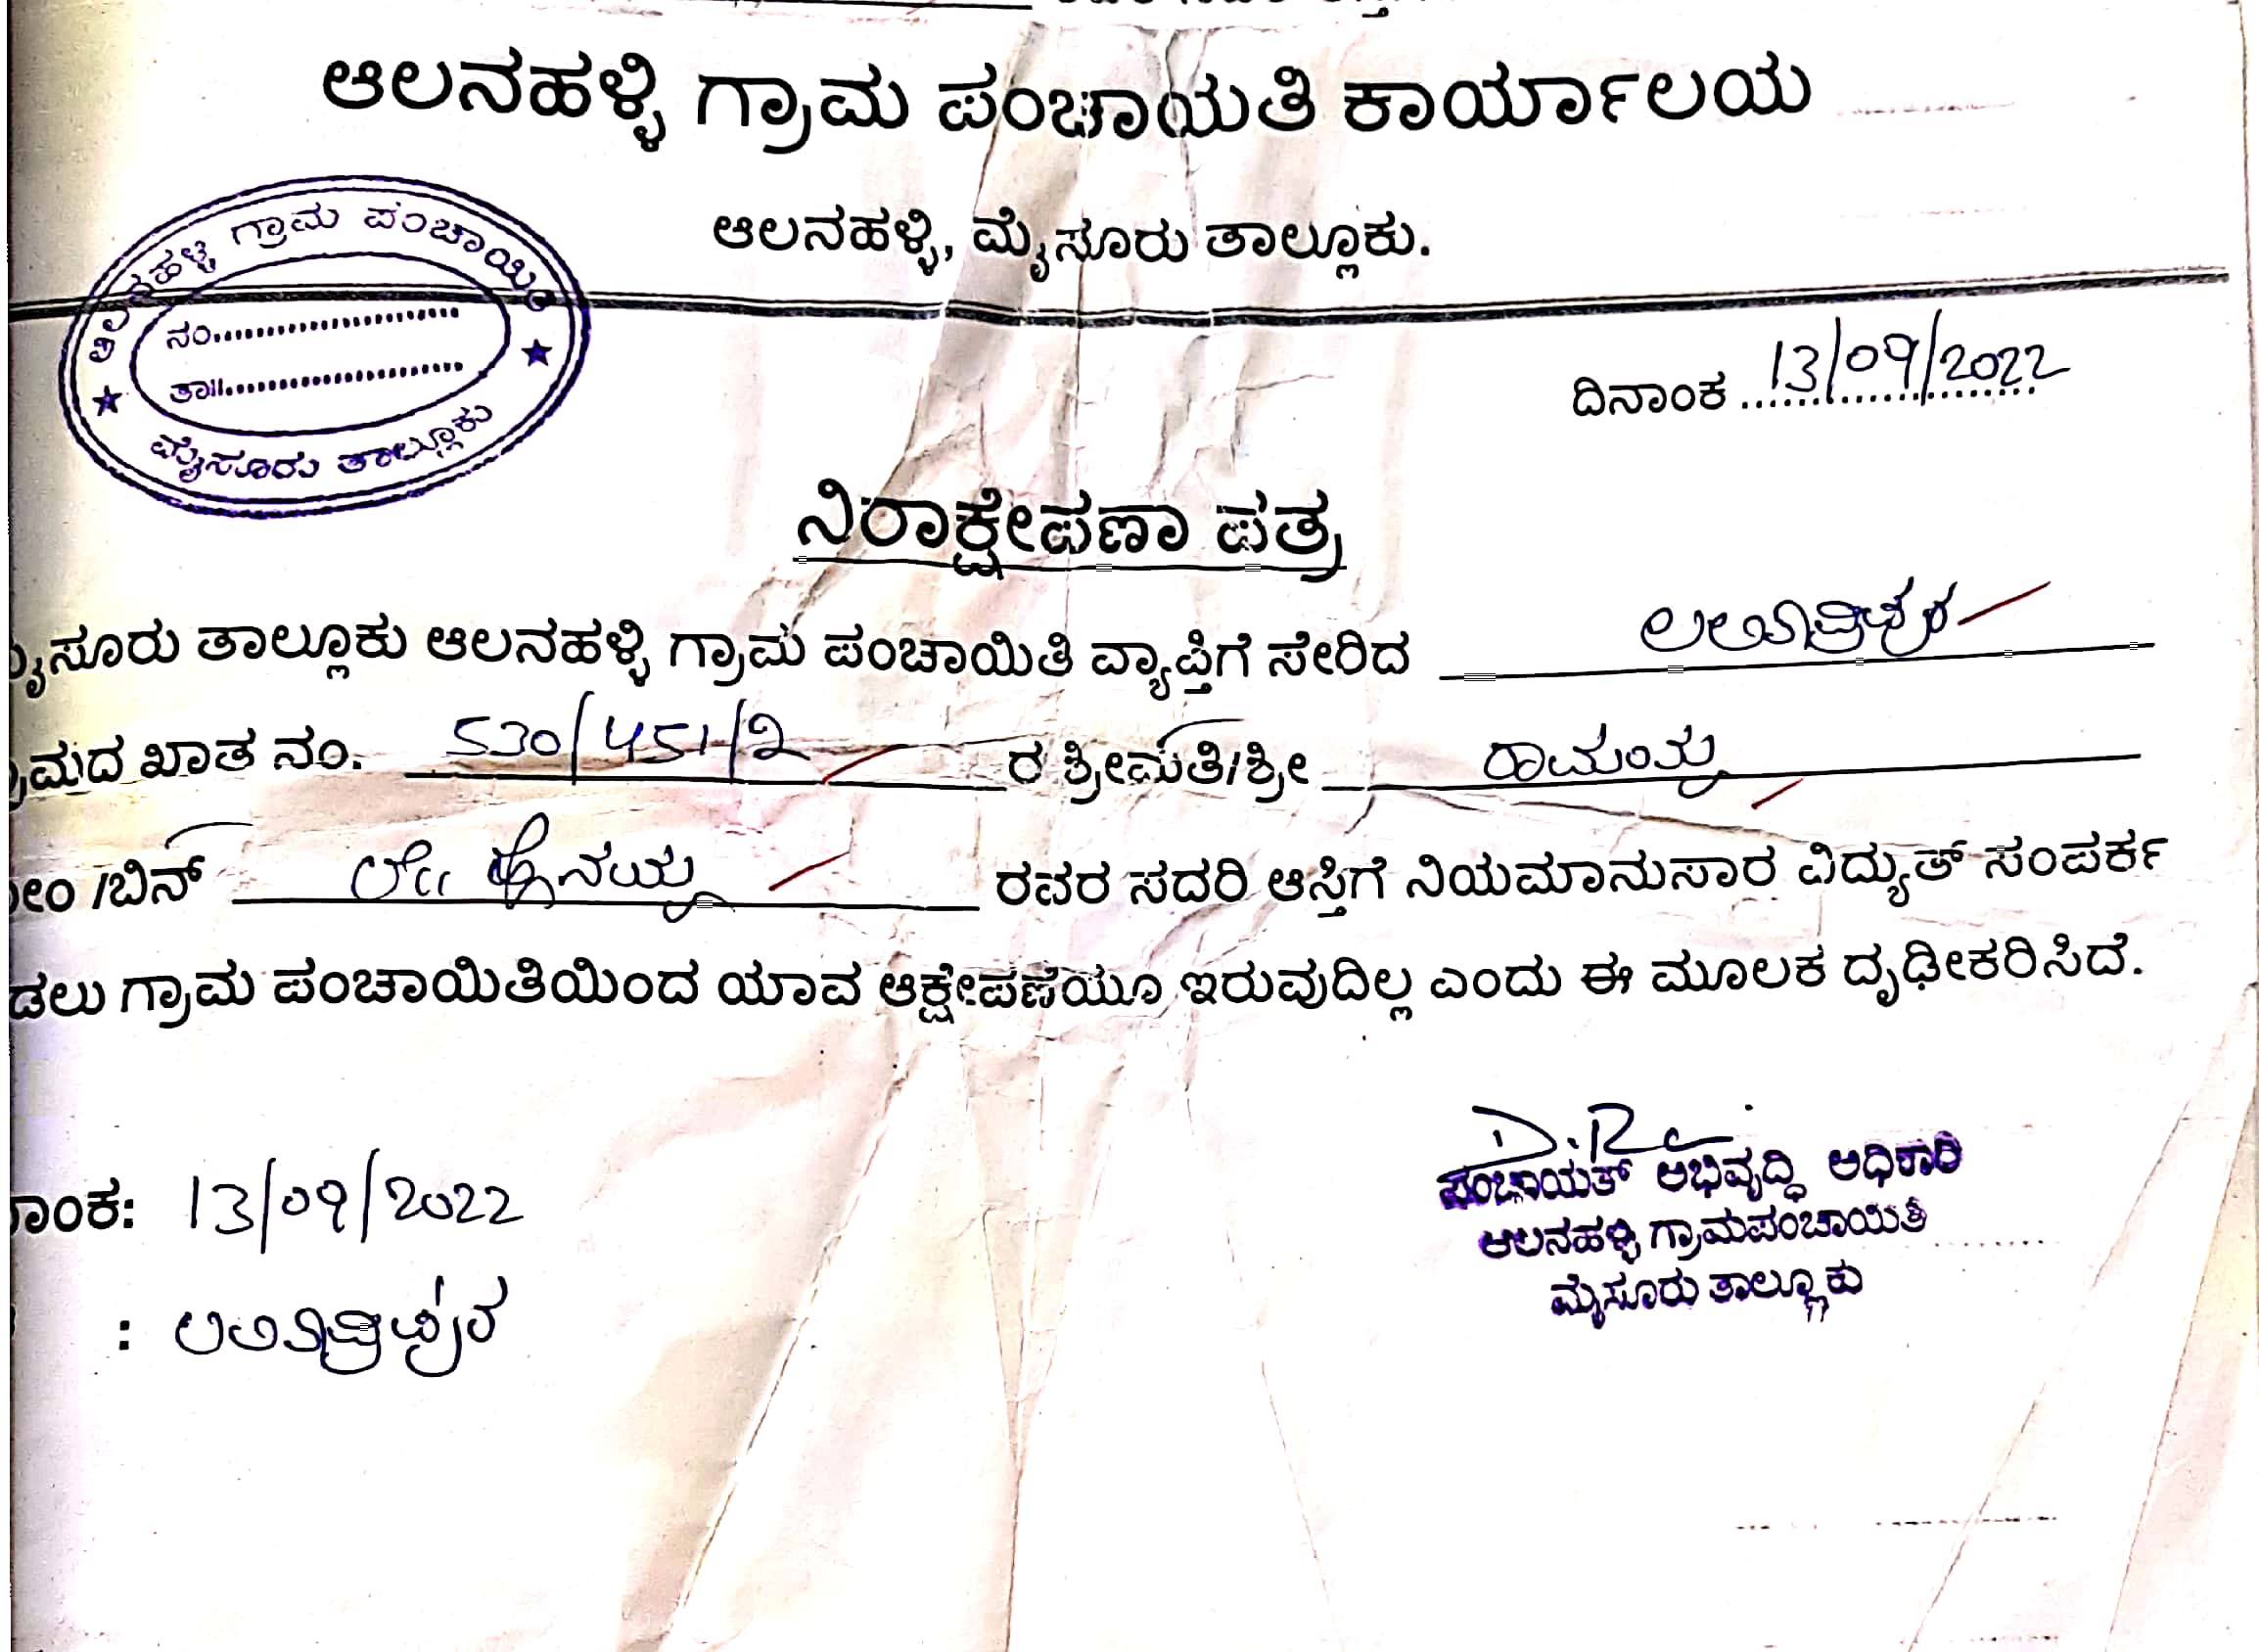 ಆಲನಹಳ್ಳಿ ಗ್ರಾಮ ಪಂಚಾಯತಿ ಕಾರ್ಯಾಲಯ
ಆಲನಹಳ್ಳಿ, ಮೈಸೂರು ತಾಲ್ಲೂಕು.
ಗ್ರಾಮ ಪಂಚಾಯಿತಿ
ನಂ.......................
ತಾ||.......................
ಮೈಸೂರು ತಾಲ್ಲೂಕು
ದಿನಾಂಕ 13/09/2022
ನಿರಾಕ್ಷೇಪಣಾ ಪತ್ರ
ಮೈಸೂರು ತಾಲ್ಲೂಕು ಆಲನಹಳ್ಳಿ ಗ್ರಾಮ ಪಂಚಾಯಿತಿ ವ್ಯಾಪ್ತಿಗೆ ಸೇರಿದ
ಖಾತ ನಂ. 530/451/2 ರ ಶ್ರೀಮತಿ/ಶ್ರೀ ರಾಮಯ್ಯ
/ಬಿನ್ ಲೇ|| ರವರ ಸದರಿ ಆಸ್ತಿಗೆ ನಿಯಮಾನುಸಾರ ವಿದ್ಯುತ್ ಸಂಪರ್ಕ
ಡಲು ಗ್ರಾಮ ಪಂಚಾಯಿತಿಯಿಂದ ಯಾವ ಆಕ್ಷೇಪಣೆಯೂ ಇರುವುದಿಲ್ಲ ಎಂದು ಈ ಮೂಲಕ ದೃಢೀಕರಿಸಿದೆ.
ಪಂಚಾಯತ್ ಅಭಿವೃದ್ಧಿ ಅಧಿಕಾರಿ
ಆಲನಹಳ್ಳಿ ಗ್ರಾಮಪಂಚಾಯಿತಿ
ಮೈಸೂರು ತಾಲ್ಲೂಕು
ನಾಂಕ: 13/09/2022